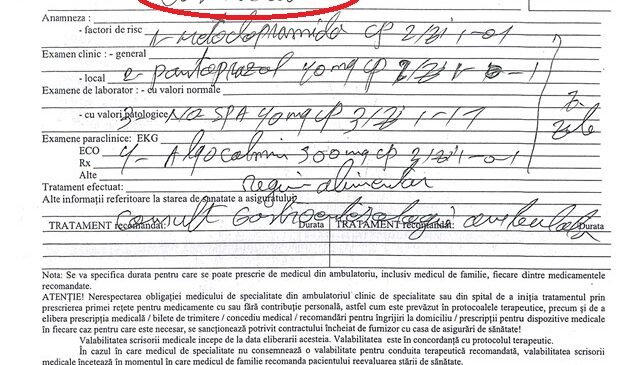 Anamneza :
- factori de risc 1- Metoclopramida cp 2/zi 1-0-1
Examen clinic : - general
- local 2- pantoprazol 40mg cp 2/zi 1-0-1
Examene de laborator : - cu valori normale
- cu valori patologice 3- NO SPA 40mg cp 3/zi 1-1-1
Examene paraclinice: EKG
ECO 4- Algocalmin 300mg cp 2/zi 1-0-1
Rx
Alte
Tratament efectuat: regim alimentar
Alte informații referitoare la starea de sanatate a asiguratului
Consult Gastroenterologie ambulator
TRATAMENT recomandat: Durata TRATAMENT recomandat: Durata
Nota: Se va specifica durata pentru care se poate prescrie de medicul din ambulatoriu, inclusiv medicul de familie, fiecare dintre medicamentele
recomandate.
ATENȚIE! Nerespectarea obligației medicului de specialitate din ambulatoriul clinic de specialitate sau din spital de a iniția tratamentul prin
prescrierea primei rețete pentru medicamente cu sau fără contribuție personală, astfel cum este prevăzut in protocoalele terapeutice, precum și de a
elibera prescripția medicală / bilete de trimitere / concediu medical / recomandări pentru îngrijiri la domiciliu / prescripții pentru dispozitive medicale
în fiecare caz pentru care este necesar, se sancționează potrivit contractului încheiat de furnizor cu casa de asigurări de sănătate!
Valabilitatea scrisorii medicale incepe de la data eliberarii acesteia. Valabilitatea este in concordanță cu protocolul terapeutic.
În cazul în care medicul de specialitate nu consemnează o valabilitate pentru conduita terapeutică recomandată, valabilitatea scrisorii
medicale încetează în momentul în care medicul de familie recomanda pacientului reevaluarea stării de sănătate.